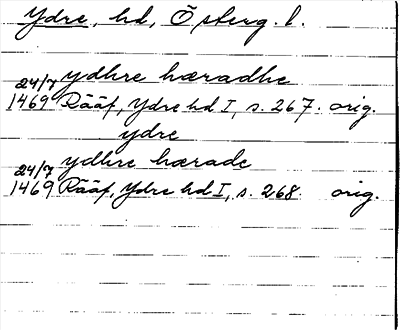 Ydre, hd, Österg. l.
24/7 ydhre hæradhe
1469 Rääf, Ydre hd I, s. 267. orig.
ydre
24/7 ydhre hærade
1469 Rääf, Ydre hd I, s. 268. orig.